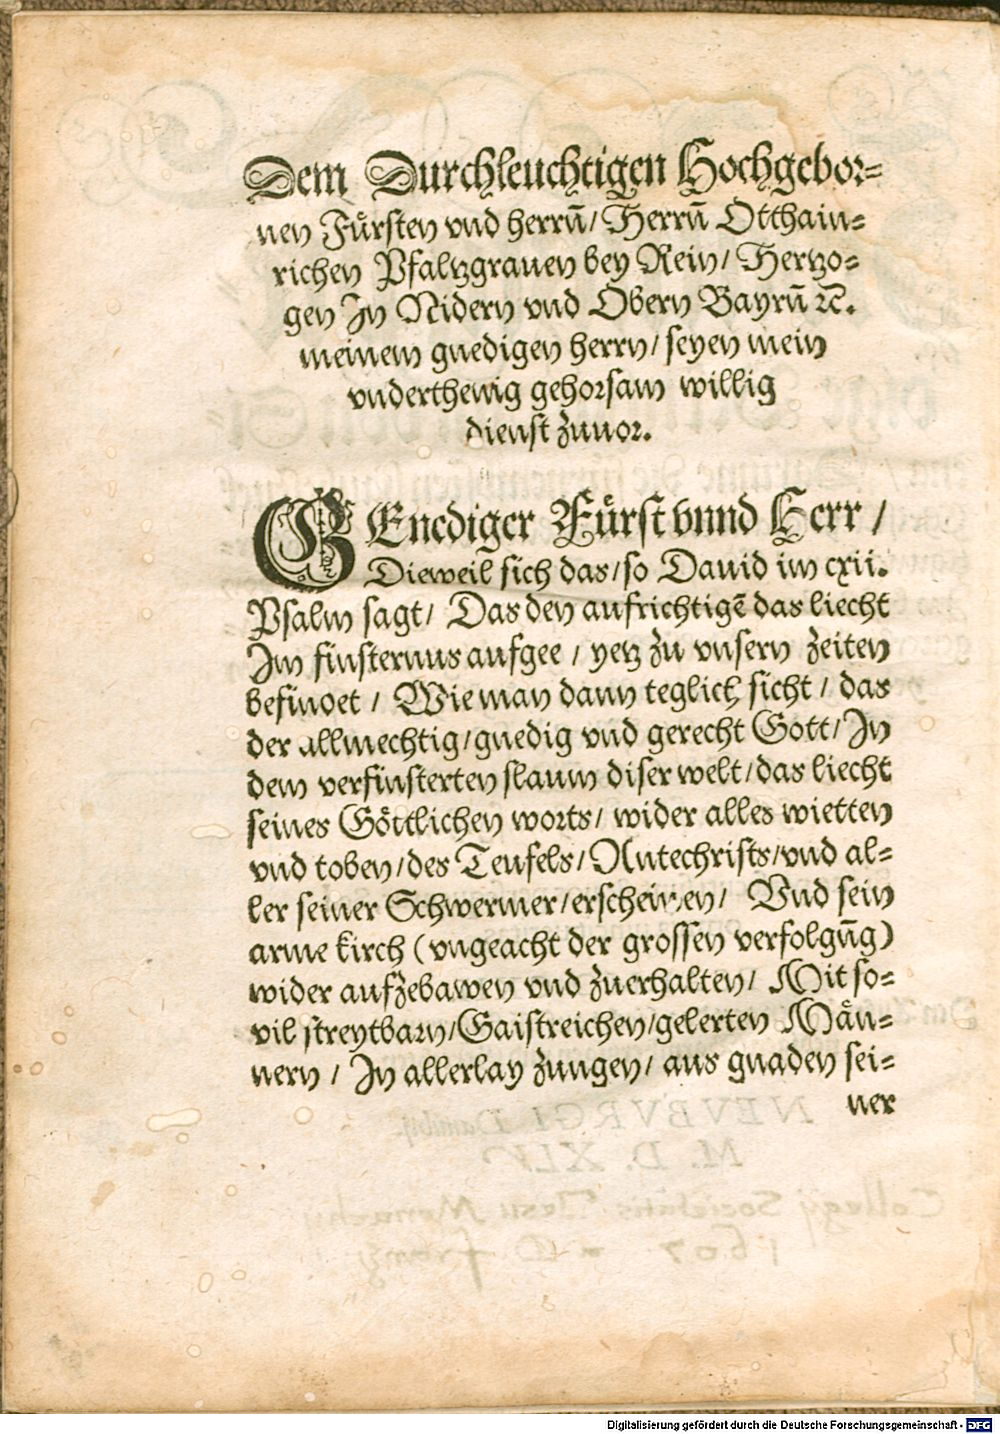 Dem Durchleuchtigen Hochgebor⸗
nen Fürsten vnd herrn̄/ Herrn̄ Otthain⸗
richen Pfaltzgrauen bey Rein/ Hertzo⸗
gen In Nidern vnd Obern Bayrn̄ ꝛc̄.
meinem gnedigen herrn/ seyen mein
vnderthenig gehorsam willig
dienst zuuor.
GEnediger Fürst vnnd Herr /
Dieweil sich das/so Dauid im cxii.
Psalm sagt/ Das den aufrichtigē das liecht
Im finsternus aufgee / yetz zu vnsern zeiten
befindet / Wie man dann teglich sicht / das
der allmechtig/gnedig vnd gerecht Gott/ In
dem verfinsterten slaum diser welt/das liecht
seines Göttlichen worts/ wider alles wietten
vnd toben/des Teufels/ Antechrists/vnd al⸗
ler seiner Schwermer/erscheinen/ Vnd sein
arme kirch (vngeacht der grossen verfolgūg)
wider aufzebawen vnd zuerhalten/ Mit so⸗
vil streytbarn/Gaistreichen/gelerten Män⸗
nern / In allerlay zungen/ aus gnaden sei⸗
ner
NEVBVRGI Danubij.
M. D. XLV
Collegij Societatis Jesu Monachij
1607
Digitalisierung gefördert durch die Deutsche Forschungsgemeinschaft - DFG